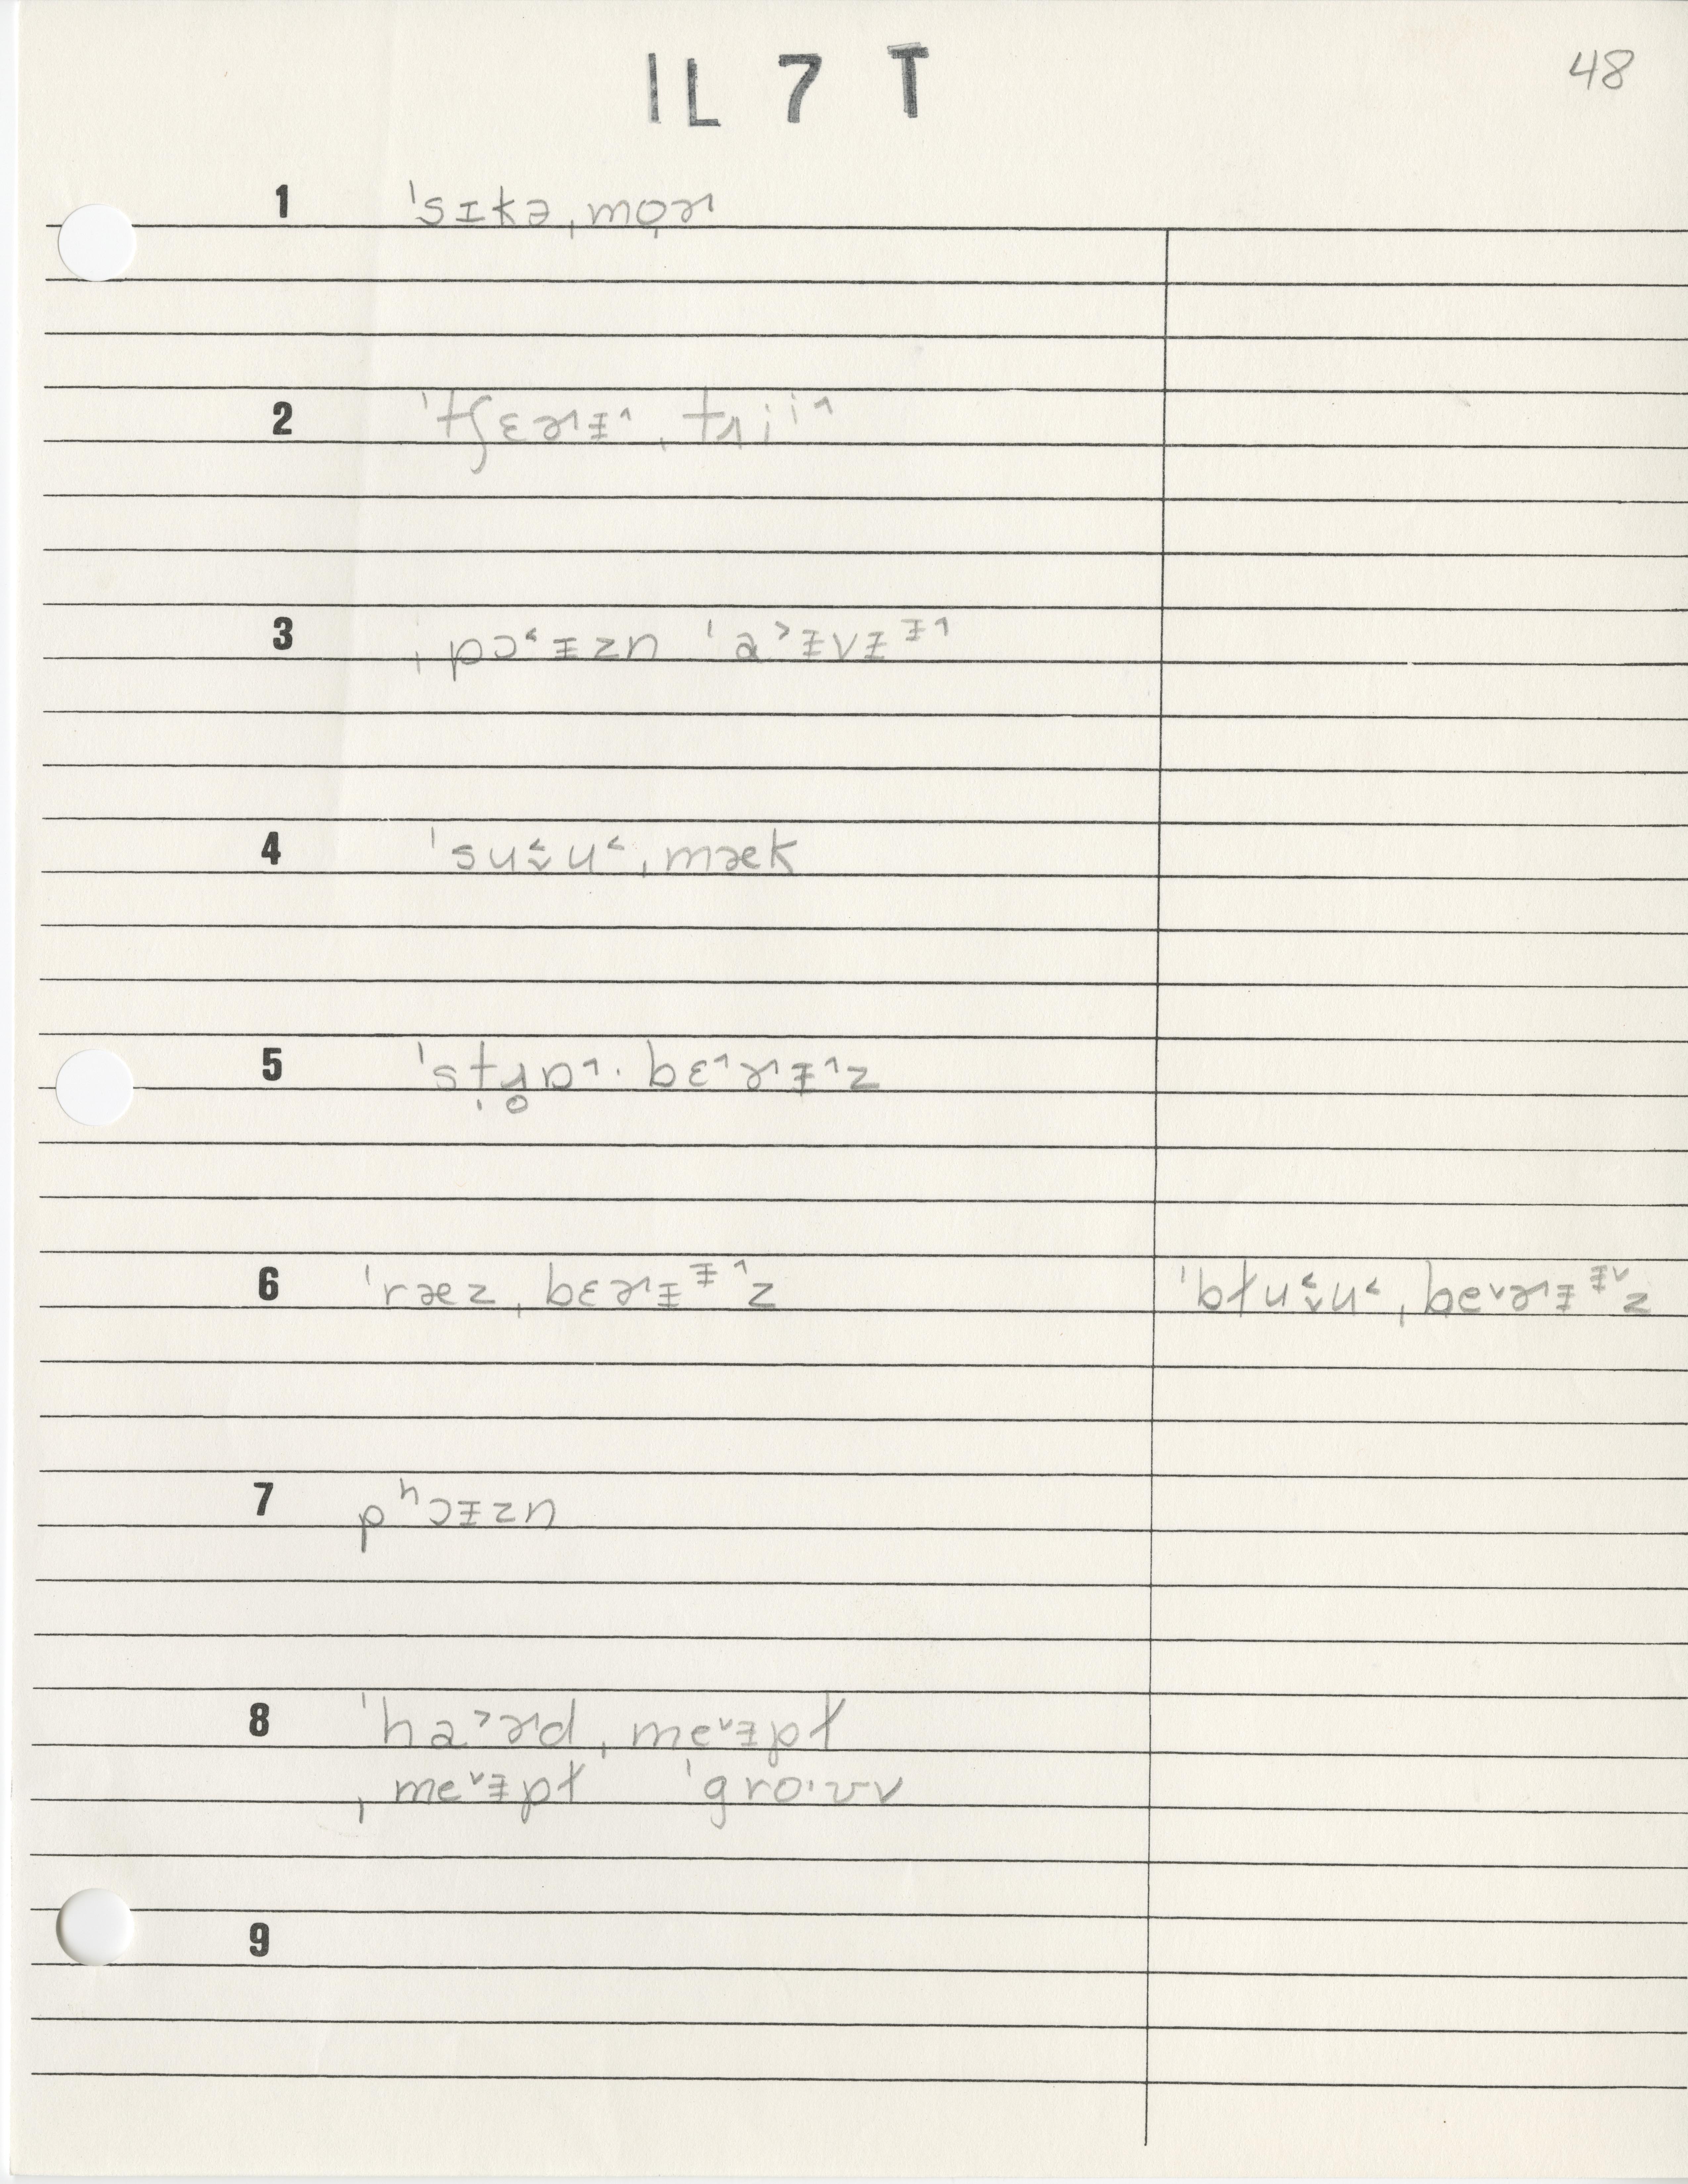 IL 7 T
48
1 ˈsɪkəˌmo̩ɚ
2 ˈtʃɛɚɪ˄ˌtɹii˄
3 ˌpɔ˂ɪzn ˈa˃ɪvɪᵻ˄
4 ˈsuu˂ˌmæk
5 ˈstɹɒ˄ˑbɛ˄ɚɪ˄z
6 ˈræzˌbɛɚɪᵻ˄z ˈbłu˂u˂ˌbe˅ɚɪᵻ˅z
7 pʰɔɪzn
8 ˈha˃ɚdˌme˅ɪpł
ˌme˅ɪpł ˈgro·ʊv
9